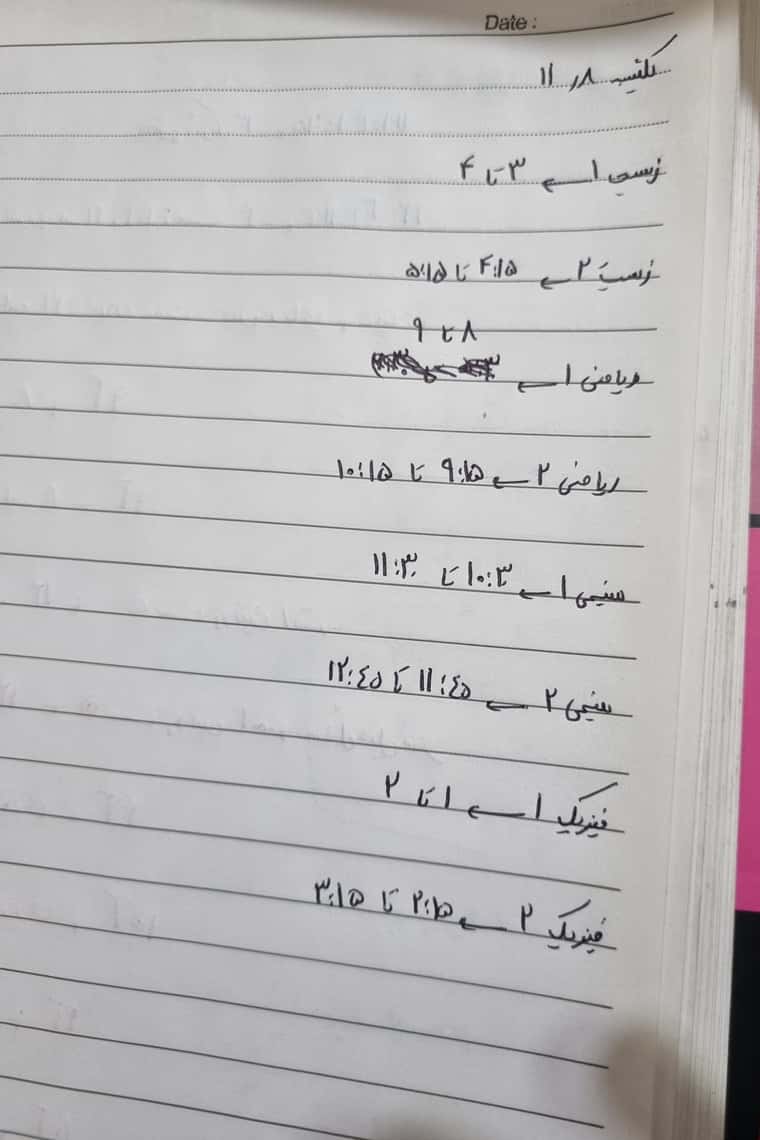 Date :
یکشنبه ۱۱٫۸
زیست ۱ ← ۳ تا ۴
زیست ۲ ← ۴:۱۵ تا ۵:۱۵
۸ تا ۹
ریاضی ۱ ←
ریاضی ۲ ← ۹:۱۵ تا ۱۰:۱۵
شیمی ۱ ← ۱۰:۳۰ تا ۱۱:۳۰
شیمی ۲ ← ۱۱:٤۵ تا ۱۲:٤۵
فیزیک ۱ ← ۱ تا ۲
فیزیک ۲ ← ۲:۱۵ تا ۳:۱۵